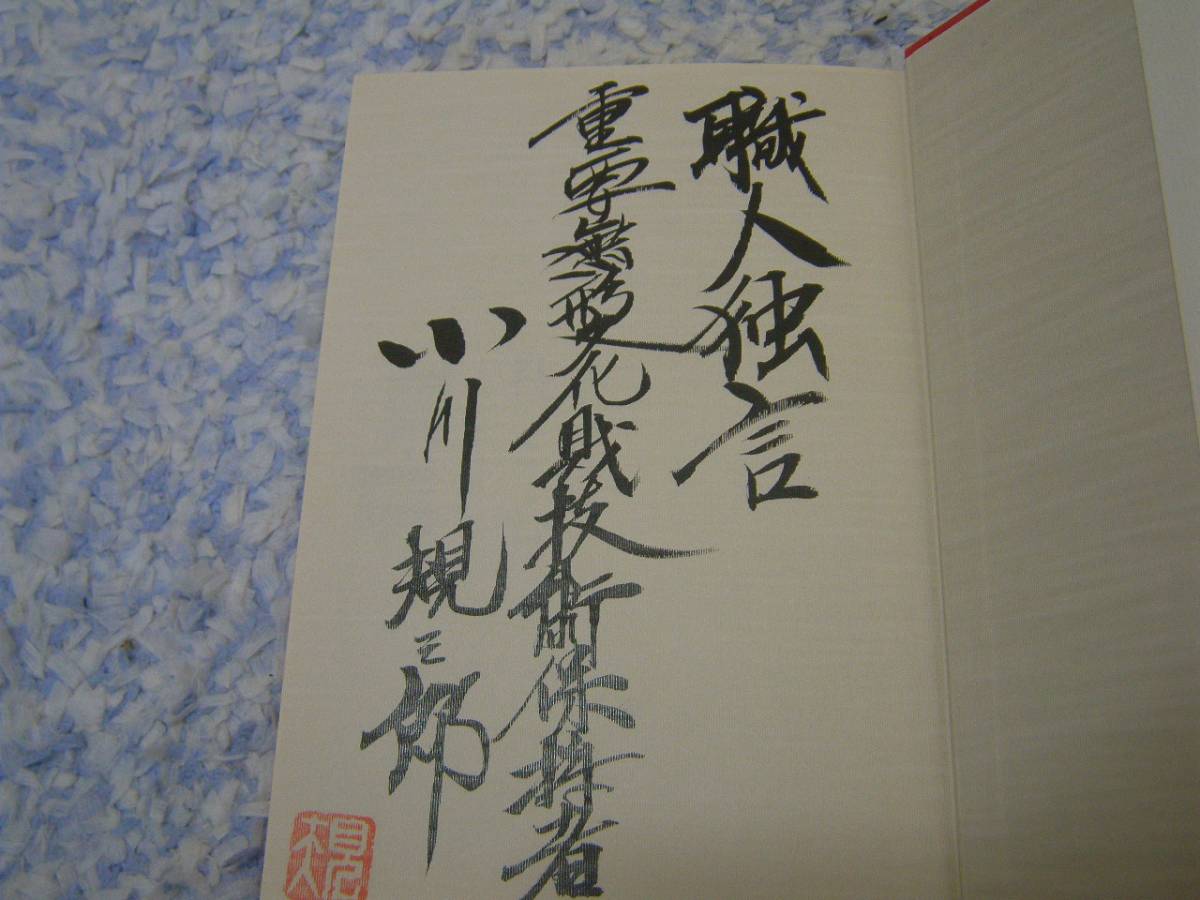 職人独言
重要無形文化財技術保持者
小川規三郎
規